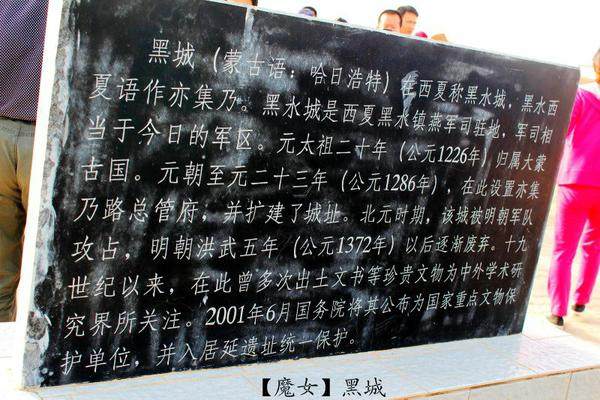 黑城（蒙古语：哈日浩特）在西夏称黑水城，黑水西
夏语作亦集乃。黑水城是西夏黑水镇燕军司驻地，军司相
当于今日的军区。元太祖二十年（公元1226年）归属大蒙
古国。元朝至元二十三年（公元1286年），在此设置亦集
乃路总管府，并扩建了城址。北元时期，该城被明朝军队
攻占，明朝洪武五年（公元1372年）以后逐渐废弃。十九
世纪以来，在此曾多次出土文书等珍贵文物为中外学术研
究界所关注。2001年6月国务院将其公布为国家重点文物保
护单位，并入居延遗址统一保护。
【魔女】黑城